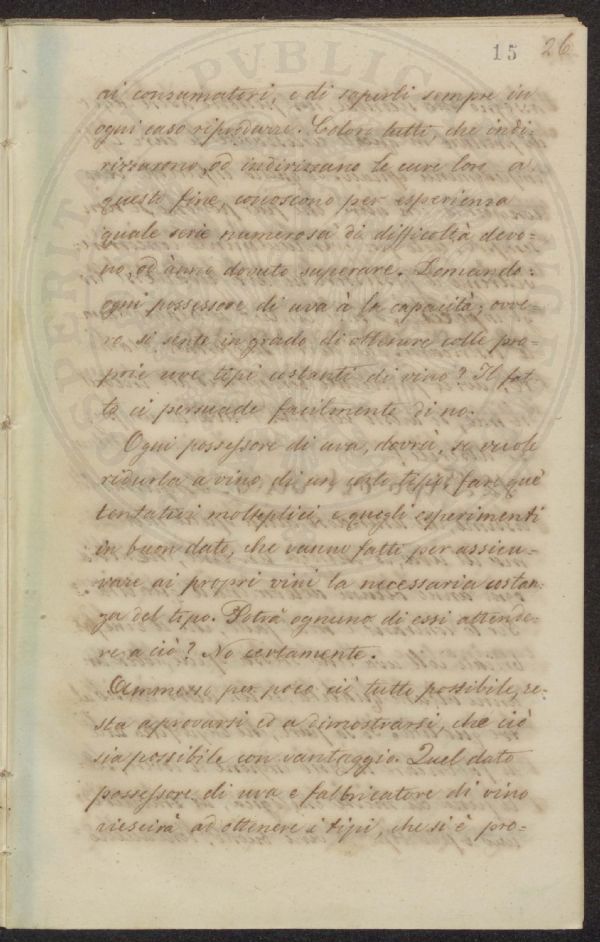 15 26
ai consumatori, e di saperli sempre in
ogni caso riprodurre. Coloro tutti, che indi-
rizzarono, od indirizzano le cure loro a
questo fine, conoscono per esperienza
quale serie numerosa di difficoltà devo=
no, od ànno dovuto superare. Domando:
ogni possessore di uva à la capacità, ovve-
ro si sente in grado di ottenere colle pro-
prie uve tipi costanti di vino? Il fat-
to ci persuade facilmente di no.
Ogni possessore di uva, dovrà, se vuole
ridurla a vino, di un certo tipo, fare que'
tentativi molteplici, e quegli esperimenti
in buon dato, che vanno fatti per assicu-
rare ai propri vini la necessaria costan-
za del tipo. Potrà ognuno di essi attende-
re a ciò? No certamente.
Ammesso per poco ciò tutto possibile, re-
sta a provarsi ed a dimostrarsi, che ciò
sia possibile con vantaggio. Quel dato
possessore di uva e fabbricatore di vino
riescirà ad ottenere i tipi, che si è pro=